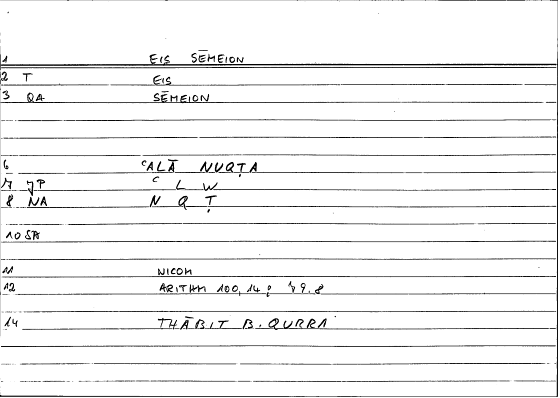 1 EIS SĒMEION
2 T EIS
3 QA SĒMEION
6 ʿALĀ NUQṬA
7 JP ʿ L W
8 NA N Q Ṭ
10 SA
11 NICOM
12 ARITHM 100,14; 79.8
14 THĀBIT B. QURRA